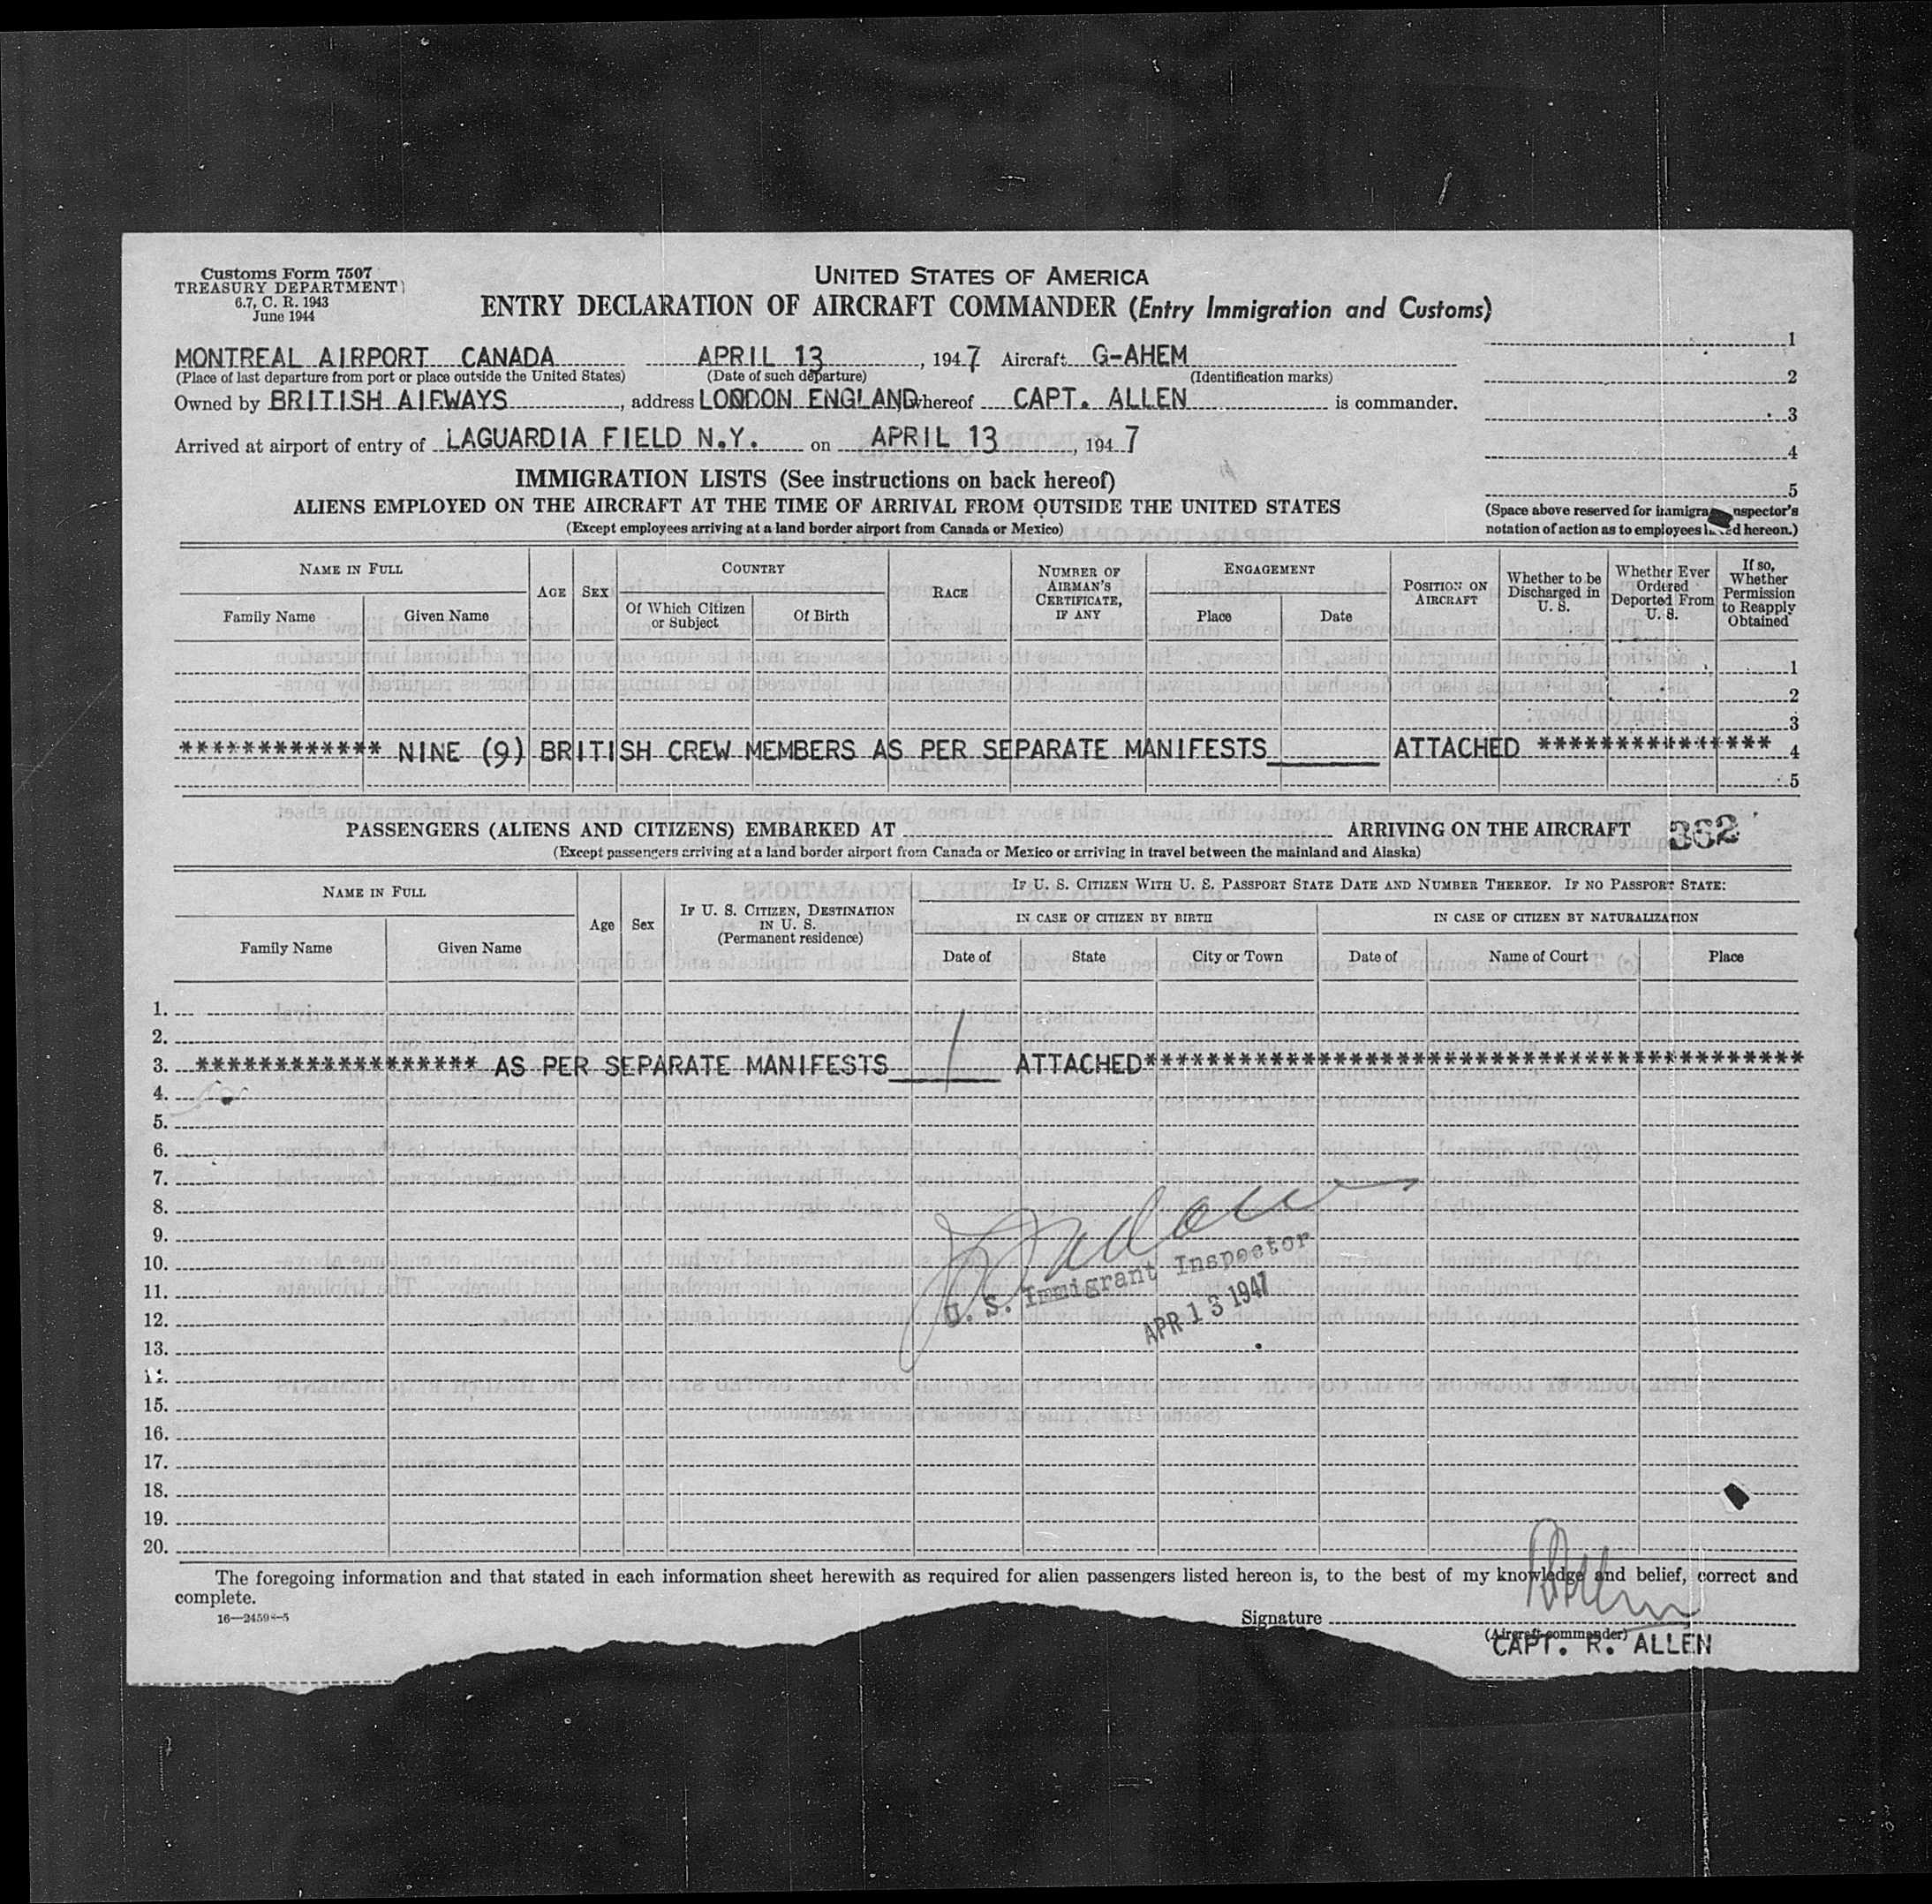 Customs Form 7507
TREASURY DEPARTMENT
6.7, C. R. 1943
June 1944
UNITED STATES OF AMERICA
ENTRY DECLARATION OF AIRCRAFT COMMANDER (Entry Immigration and Customs)
MONTREAL AIRPORT CANADA APRIL 13, 1947 Aircraft G-AHEM
(Place of last departure from port or place outside the United States) (Date of such departure) (Identification marks)
Owned by BRITISH AIRWAYS, address LONDON ENGLAND whereof CAPT. ALLEN is commander.
Arrived at airport of entry of LAGUARDIA FIELD N.Y. on APRIL 13, 1947
1
2
3
4
5
(Space above reserved for immigrant inspector's
notation of action as to employees listed hereon.)
IMMIGRATION LISTS (See instructions on back hereof)
ALIENS EMPLOYED ON THE AIRCRAFT AT THE TIME OF ARRIVAL FROM OUTSIDE THE UNITED STATES
(Except employees arriving at a land border airport from Canada or Mexico)
NAME IN FULL
Family Name Given Name
AGE
SEX
COUNTRY
Of Which Citizen or Subject
Of Birth
RACE
NUMBER OF AIRMAN'S CERTIFICATE, IF ANY
ENGAGEMENT
Place Date
POSITION ON AIRCRAFT
Whether to be Discharged in U. S.
Whether Ever Ordered Deported From U. S.
If so, Whether Permission to Reapply Obtained
1
2
3
************* NINE (9) BRITISH CREW MEMBERS AS PER SEPARATE MANIFESTS ATTACHED *************** 4
5
PASSENGERS (ALIENS AND CITIZENS) EMBARKED AT ARRIVING ON THE AIRCRAFT 362
(Except passengers arriving at a land border airport from Canada or Mexico or arriving in travel between the mainland and Alaska)
NAME IN FULL
Family Name Given Name
Age
Sex
IF U. S. CITIZEN, DESTINATION IN U. S.
(Permanent residence)
IF U. S. CITIZEN WITH U. S. PASSPORT STATE DATE AND NUMBER THEREOF. IF NO PASSPORT STATE:
IN CASE OF CITIZEN BY BIRTH IN CASE OF CITIZEN BY NATURALIZATION
Date of State City or Town Date of Name of Court Place
1.
2.
3. ****************** AS PER SEPARATE MANIFESTS 1 ATTACHED******************************************
4.
5.
6.
7.
8.
9.
10.
11.
12.
13.
14.
15.
16.
17.
18.
19.
20.
U. S. Immigrant Inspector
APR 13 1947
The foregoing information and that stated in each information sheet herewith as required for alien passengers listed hereon is, to the best of my knowledge and belief, correct and
complete.
Signature
(Aircraft commander)
CAPT. R. ALLEN